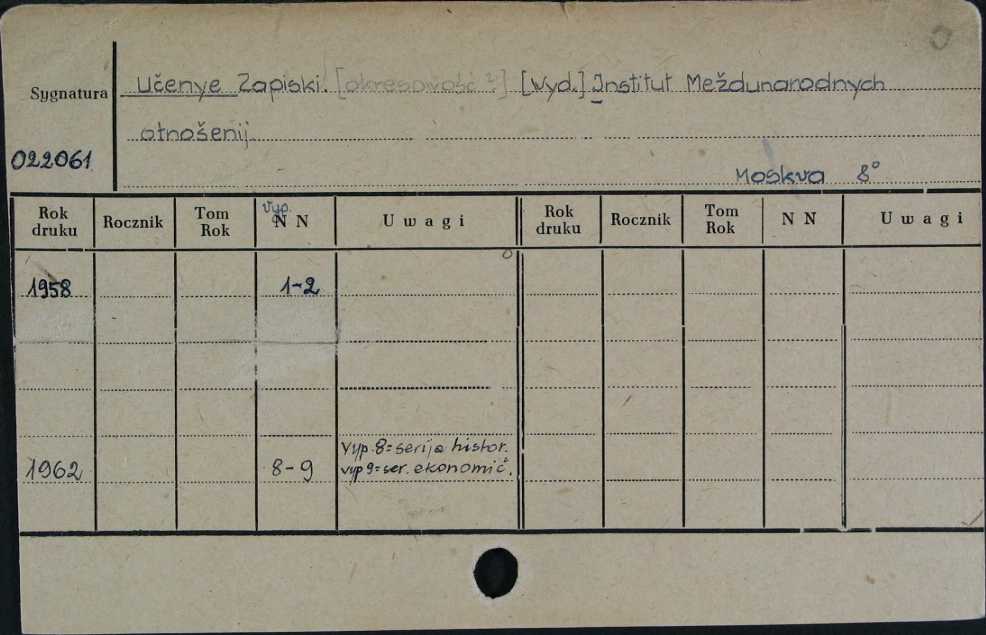 Sygnatura
Učenye Zapiski. [okresowość ?] [Vyd.] Institut Meždunarodnych
otnošenij.
022061
Moskva 8°
Rok druku Rocznik Tom Rok Vyp. N N Uwagi Rok druku Rocznik Tom Rok N N Uwagi
1958 1-2
vyp. 8=serija histor.
1962 8-9 vyp 9=ser. ekonomič.